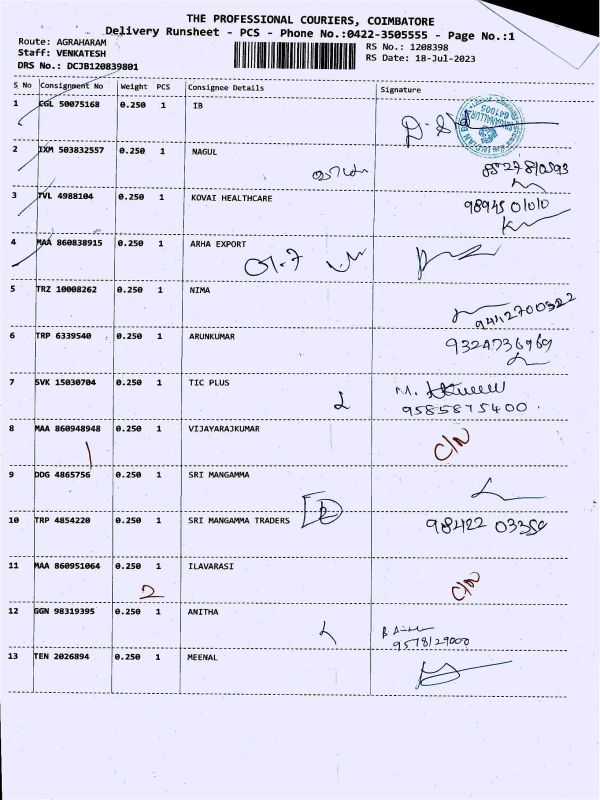 THE PROFESSIONAL COURIERS, COIMBATORE
Delivery Runsheet - PCS - Phone No.:0422-3505555 - Page No.:1
Route: AGRAHARAM
Staff: VENKATESH
DRS No.: DCJB120839801
RS No.: 1208398
RS Date: 18-Jul-2023
S No Consignment No Weight PCS Consignee Details Signature
1 CGL 50075168 0.250 1 IB
641005
2 IXM 503832557 0.250 1 NAGUL
3 TVL 4988104 0.250 1 KOVAI HEALTHCARE
98945 01010
4 MAA 860838915 0.250 1 ARHA EXPORT
5 TRZ 10008262 0.250 1 NIMA
9442700322
6 TRP 6339540 0.250 1 ARUNKUMAR
9324736969
7 SVK 15030704 0.250 1 TIC PLUS
9585875400
8 MAA 860948948 0.250 1 VIJAYARAJKUMAR C/N
1
9 DDG 4865756 0.250 1 SRI MANGAMMA
10 TRP 4854220 0.250 1 SRI MANGAMMA TRADERS
11 MAA 860951064 0.250 1 ILAVARASI C/N
2
12 GGN 98319395 0.250 1 ANITHA
9578129000
13 TEN 2026894 0.250 1 MEENAL